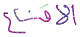 الاقناع